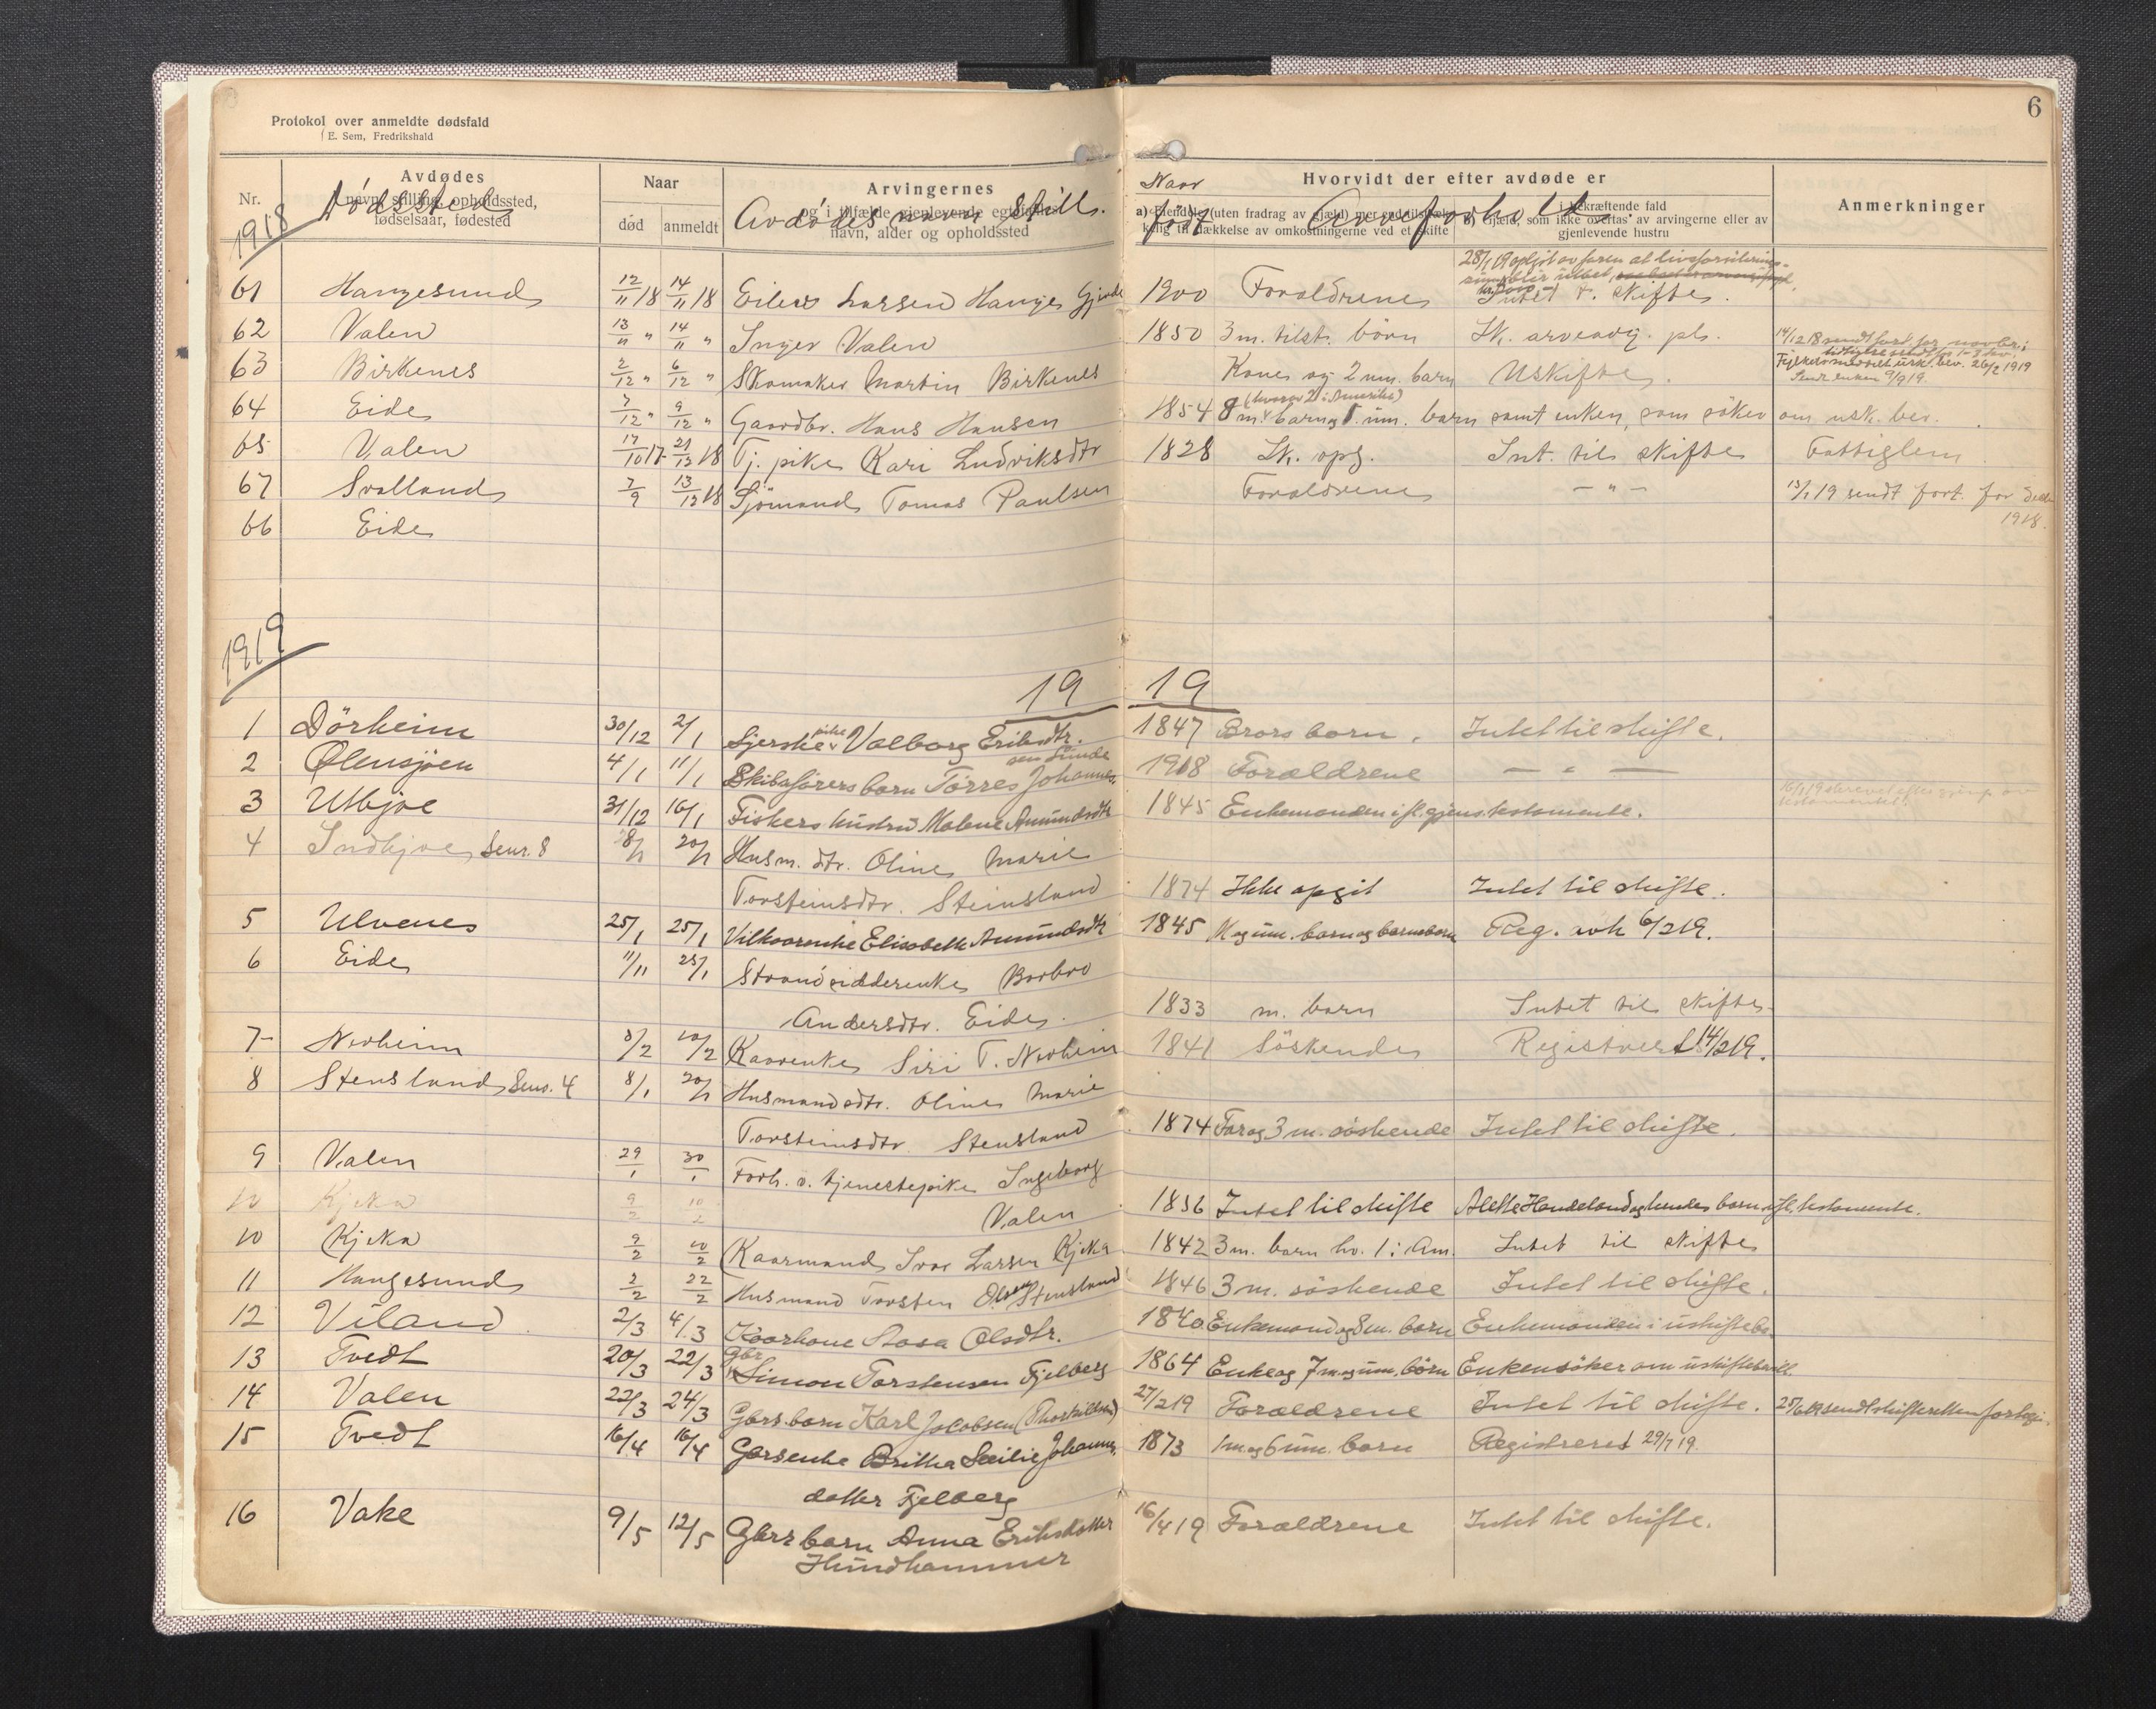 Protokol over anmeldte dødsfald
E. Sem, Fredrikshald
6
Nr. Avdødes Naar Arvingernes Naar Hvorvidt der efter avdøde er Anmerkninger
navn, stilling, opholdssted, fødselsaar, fødested død anmeldt og i tilfælde gjenlevende navn, alder og opholdssted
Dødssted Avdødes navn Still. født Arveforhold
1918
28/1 19 oplyst av faren at livsforsikrings-
61 Haugesund 12/11 18 14/11 18 Eilert Larsen Hauge Gjerde 1900 Forældrene Intet t. skifte.
62 Valen 13/11 " 14/11 " Inger Valen 1850 3 m. tilst. börn Sk. arveavg. pl.
63 Birkenes 2/12 " 6/12 " Skomaker Martin Birkenes Kone og 2 um. barn Uskifte. 26/2 1919
Sendt enken 9/9 19
64 Eide 7/12 " 9/12 " Gaardbr. Hans Hansen 1854 8 m. (hvorav 2 i Amerika) barn og 1 um. barn samt enken, som söker om usk. bev.
65 Valen 17/10 17 21/12 18 Tj. pike Kari Ludviksdtr 1828 Sk. opg. Int. til skifte Fattiglem
67 Svolland 7/9 13/12 18 Sjömand Tomas Paulsen Forældrene - " - 13/1 19 sendt fort. for Decbr
1918.
66 Eide
1919
19 19
1 Dörheim 30/12 2/1 pike Valborg Eriksdtr. 1847 Brors barn. Intet til skifte.
2 Ølensjöen 4/1 11/1 Skibsförers barn Torres Johannes-
sen Sunde 1918 Forældrene — " —
3 Utbjoe 31/12 16/1 Fiskers hustru Malene Amundsdtr 1845 Enkemanden ifl. gjens. testamente.
4 Indbjoe Senr. 8 8/1 20/1 Husm. dtr. Oline Marie
Torsteinsdtr. Steinsland 1874 Ikke opgit Intet til skifte.
5 Ulvenes 25/1 25/1 Vilkaarenke Elisabeth Amundsdtr 1845 M og um. barn og barnebarn Reg. avh 6/2 19.
6 Eide 11/11 25/1 Strandsidderenke Barbro
Andersdtr. Eide. 1833 m. barn Intet til skifte
7 Nerheim 8/2 10/2 Kaarenke Siri T. Nerheim 1841 Söskende Registrert 14/2 19.
8 Stensland Senr. 4 8/1 20/1 Husmandsdtr. Oline Marie
Torsteinsdtr Stensland 1874 Far og 3 m. söskende Intet til skifte.
9 Valen 29/1 30/1 Forh. v. tjenestepike Ingeborg
10 Kjeka 9/2 10/2 Valen 1836 Intet til skifte Alette Handeland og hendes barn ifl. testamente.
10 Kjeka 9/2 10/2 Kaarmand Ivar Larsen Kjeka 1842 3 m. barn hv. 1 i Am. Intet til skifte
11 Haugesund 2/2 22/2 Husmand Torsten Olsen Stensland 1846 3 m. söskende Intet til skifte.
12 Viland 2/3 4/3 Kaarkone Rosa Olsdtr. 1840 Enkemand og 8 m. barn Enkemanden i uskiftebo
13 Tvedt 20/3 22/3 Gbr Simon Torstensen Fjelberg 1864 Enke og 7 m og um. börn Enken söker om uskiftebevill.
14 Valen 22/3 24/3 Gbrs. barn Karl Jacobsen (Thorkildsen) 27/2 19 Forældrene Intet til skifte.
15 Tvedt 16/4 16/4 Gbrsenke Britha Secilie Johannes-
datter Fjelberg 1873 1 m og 6 um. barn Registreret 29/7 19.
16 Vake 9/5 12/5 Gbrs barn Anna Eriksdatter 16/4 19 Forældrene Intet til skifte.
Hundhammer